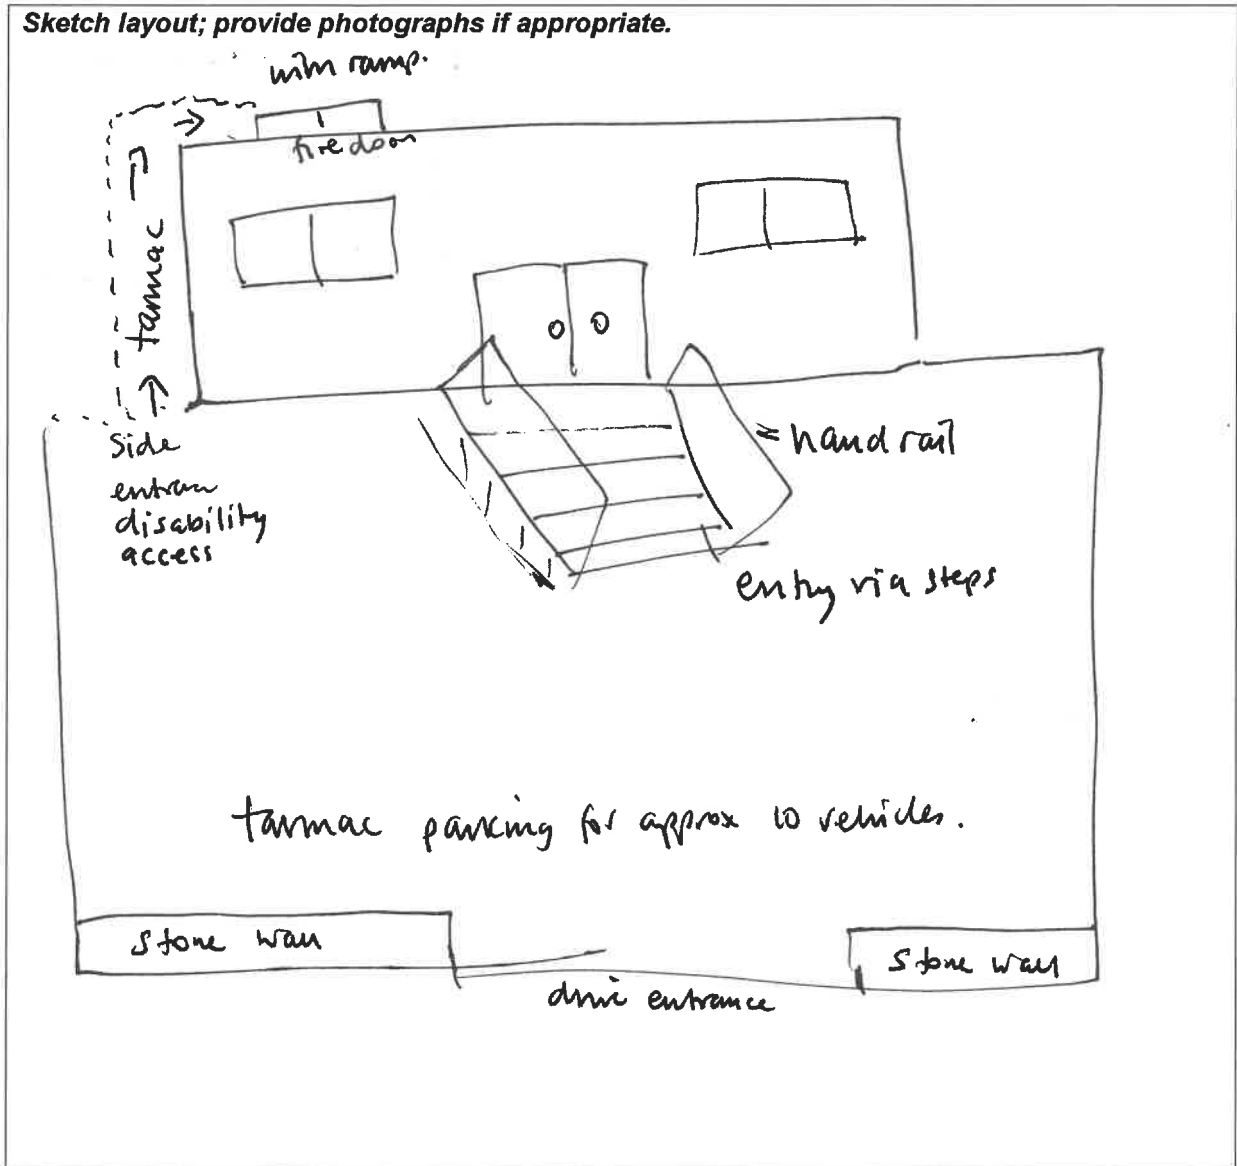 Sketch layout; provide photographs if appropriate.
with ramp.
fire door
tarmac
Side
entrance
disability
access
= handrail
entry via steps
tarmac parking for approx 10 vehicles.
stone wall
stone wall
drive entrance